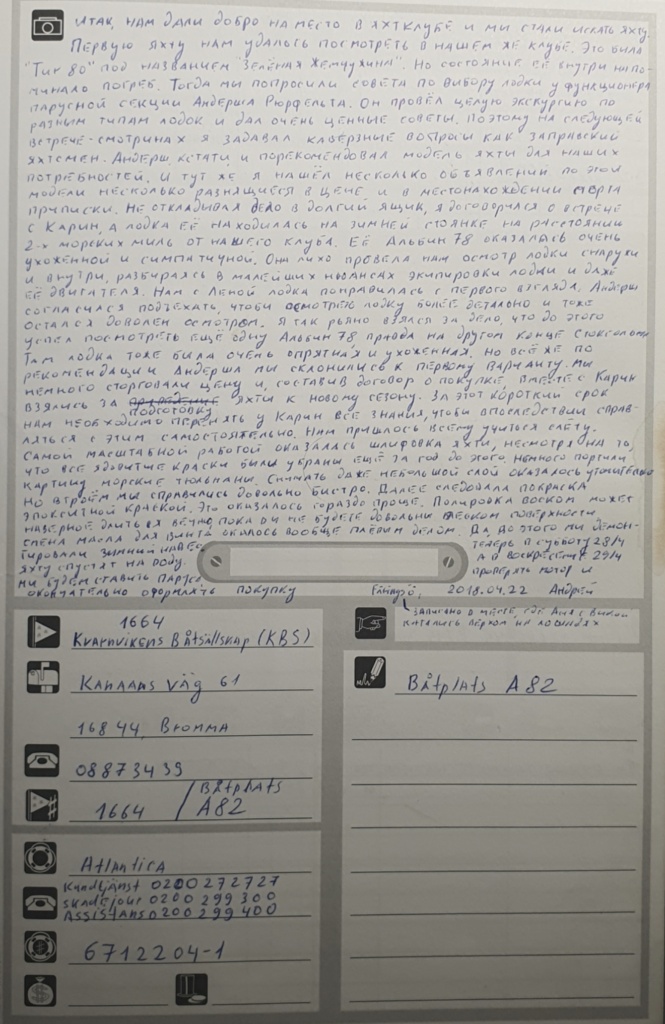 Итак, нам дали добро на место в яхтклубе и мы стали искать яхту.
Первую яхту нам удалось посмотреть в нашем же клубе. Это была
"Tur 80" под названием "Зелёная жемчужина". Но состояние её внутри напо-
минало погреб. Тогда мы попросили совета по выбору лодки у функционера
парусной секции Андерша Рюрфельта. Он провёл целую экскурсию по
разным типам лодок и дал очень ценные советы. Поэтому на следующей
встрече-смотринах я задавал каверзные вопросы как заправский
яхтсмен. Андерш, кстати, и порекомендовал модель яхты для наших
потребностей. И тут же я нашёл несколько объявлений по этой
модели несколько разнящиеся в цене и в местонахождении порта
приписки. Не откладывая дело в долгий ящик, я договорился о встрече
с Карин, а лодка её находилась на зимней стоянке на расстоянии
2-х морских миль от нашего клуба. Её Альбин 78 оказалась очень
ухоженной и симпатичной. Она лихо провела нам осмотр лодки снаружи
и внутри, разбираясь в малейших нюансах экипировки лодки и даже
её двигателя. Нам с Леной лодка понравилась с первого взгляда. Андерш
согласился подъехать, чтобы осмотреть лодку более детально и тоже
остался доволен осмотром. Я так рьяно взялся за дело, что до этого
успел посмотреть ещё одну Альбин 78, правда на другом конце Стокгольма
Там лодка тоже была очень опрятная и ухоженная. Но всё же по
рекомендации Андерша мы склонились к первому варианту. Мы
немного сторговали цену и, составив договор о покупке, вместе с Карин
взялись за подготовку яхты к новому сезону. За этот короткий срок
нам необходимо перенять у Карин все знания, чтобы впоследствии справ-
ляться с этим самостоятельно. Нам пришлось всему учиться с лёту.
Самой масштабной работой оказалась шлифовка яхты, несмотря на то,
что все ядовитые краски были убраны ещё за год до этого. Немного портили
картину морские тюльпаны. Счищать даже небольшой слой оказалось утомительно
Но втроём мы справились довольно быстро. Далее следовала покраска
эпокситной краской. Это оказалось гораздо проще. Полировка воском может
наверное длиться вечно, пока вы не будете довольны блеском поверхности
смена масла для винта оказлось вообще плёвым делом. Да, до этого мы демон-
тировали зимний навес
теперь в субботу 28/4
яхту спустят на воду.
а в воскресенье 29/4
мы будем ставить паруса
проверять мотор и
окончательно оформлять покупку
Färingsö, 2018.04.22 Андрей
записано в месте, где Аня с Викой
катались верхом на лошадях
1664
Kvarnvikens Båtsällskap (KBS)
Kanaans väg 61
Båtplats A82
168 44, Bromma
08873439
1664 / Båtplats
A82
Atlantica
Kundtjänst 0200 272727
Skadejour 0200 299 300
Assistans 0200 299 400
6712204-1